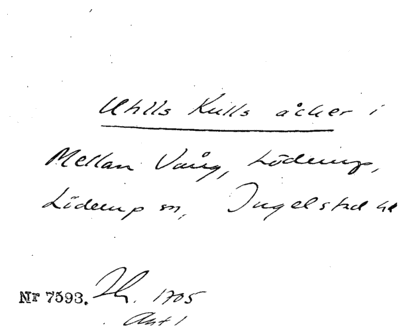 Uhlls Kulls åcker i
Mellan Vång, Löderup,
Löderup sn, Ingelstad hd
Nr 7593. 1705
Akt 1